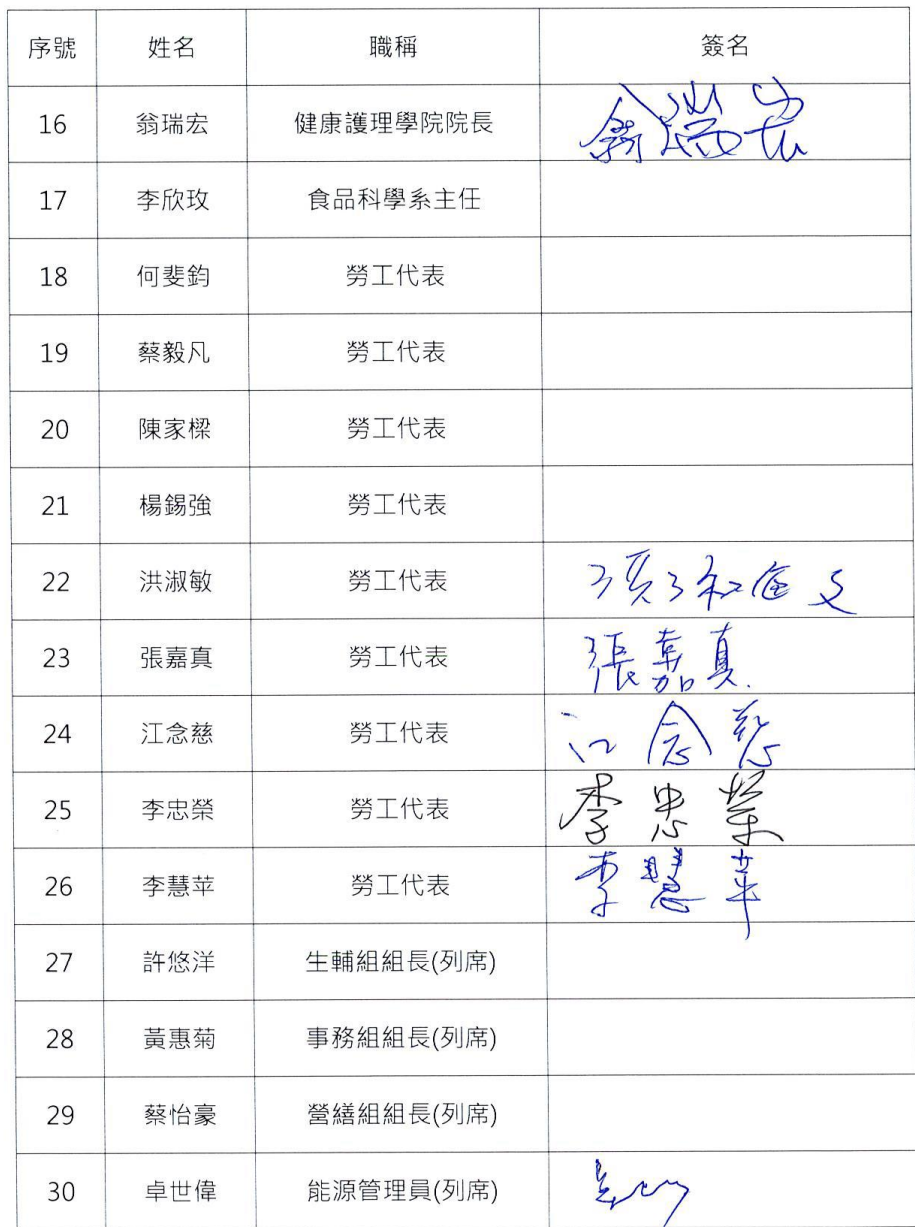 序號 姓名 職稱 簽名
16 翁瑞宏 健康護理學院院長 翁瑞宏
17 李欣玫 食品科學系主任
18 何斐鈞 勞工代表
19 蔡毅凡 勞工代表
20 陳家樑 勞工代表
21 楊錫強 勞工代表
22 洪淑敏 勞工代表
23 張嘉真 勞工代表 張嘉真
24 江念慈 勞工代表 江念慈
25 李忠榮 勞工代表 李忠榮
26 李慧苹 勞工代表 李慧苹
27 許悠洋 生輔組組長(列席)
28 黃惠菊 事務組組長(列席)
29 蔡怡豪 營繕組組長(列席)
30 卓世偉 能源管理員(列席)